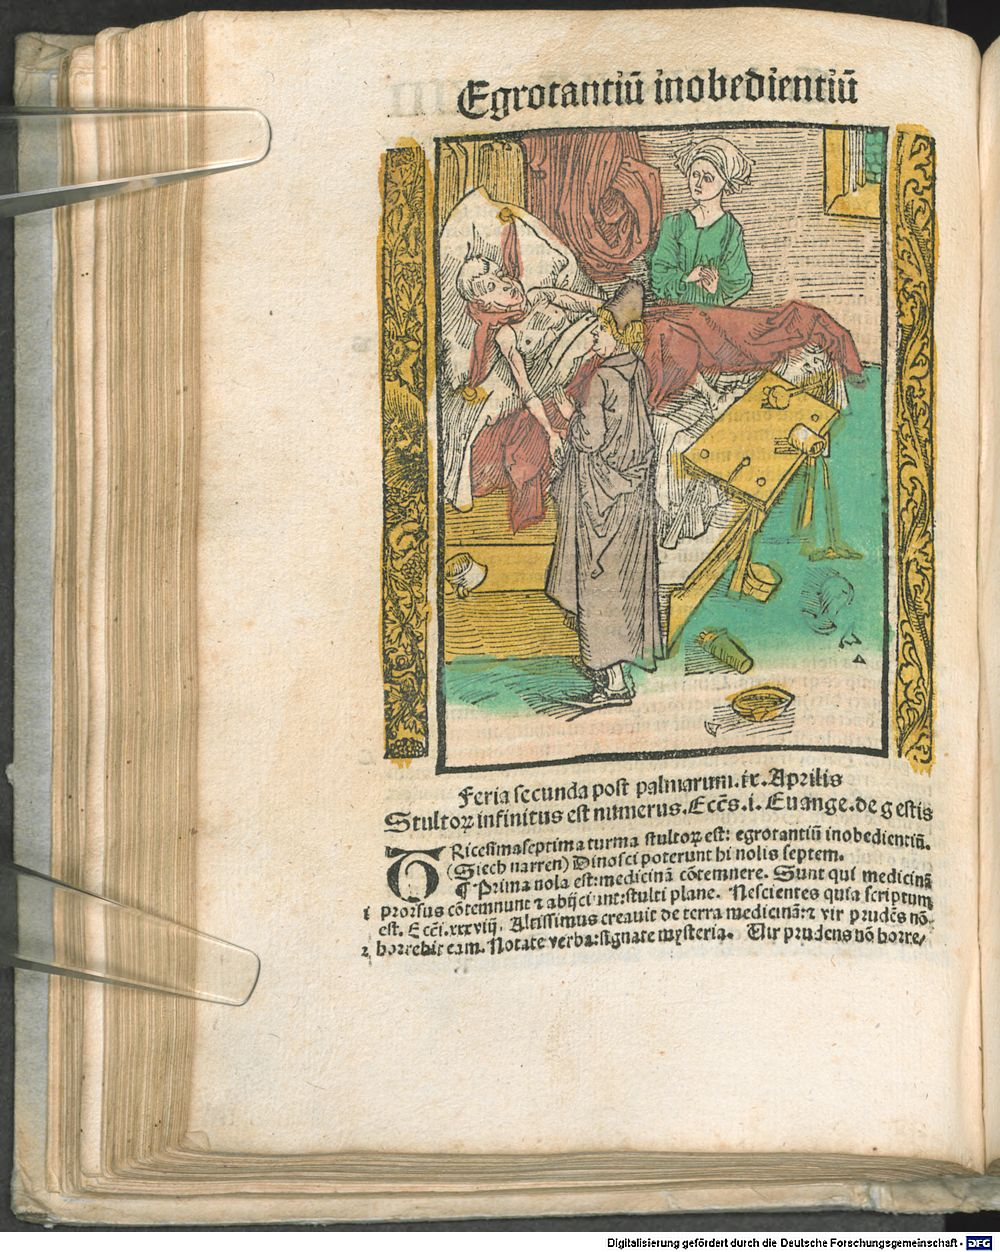 Egrotantiū inobedientiū
Feria secunda post palmarum. ix. Aprilis
Stultoꝝ infinitus est numerus. Ecc̄s. i. Euange. de gestis
TRicesimaseptima turma stultoꝝ est: egrotantiū inobedientiū.
(Siech narren) Dinosci poterunt hi nolis septem.
¶ Prima nola est: medicinā cōtemnere. Sunt qui medicinā
1 prorsus cōtemnunt ⁊ abijciunt: stulti plane. Nescientes quia scriptum
est. Ecc̄i. xxxviij. Altissimus creauit de terra medicinā: ⁊ vir prudēs nō
2 horrebit eam. Notate verba: signate mysteria. Vir prudens nō horre/
Digitalisierung gefördert durch die Deutsche Forschungsgemeinschaft - DFG